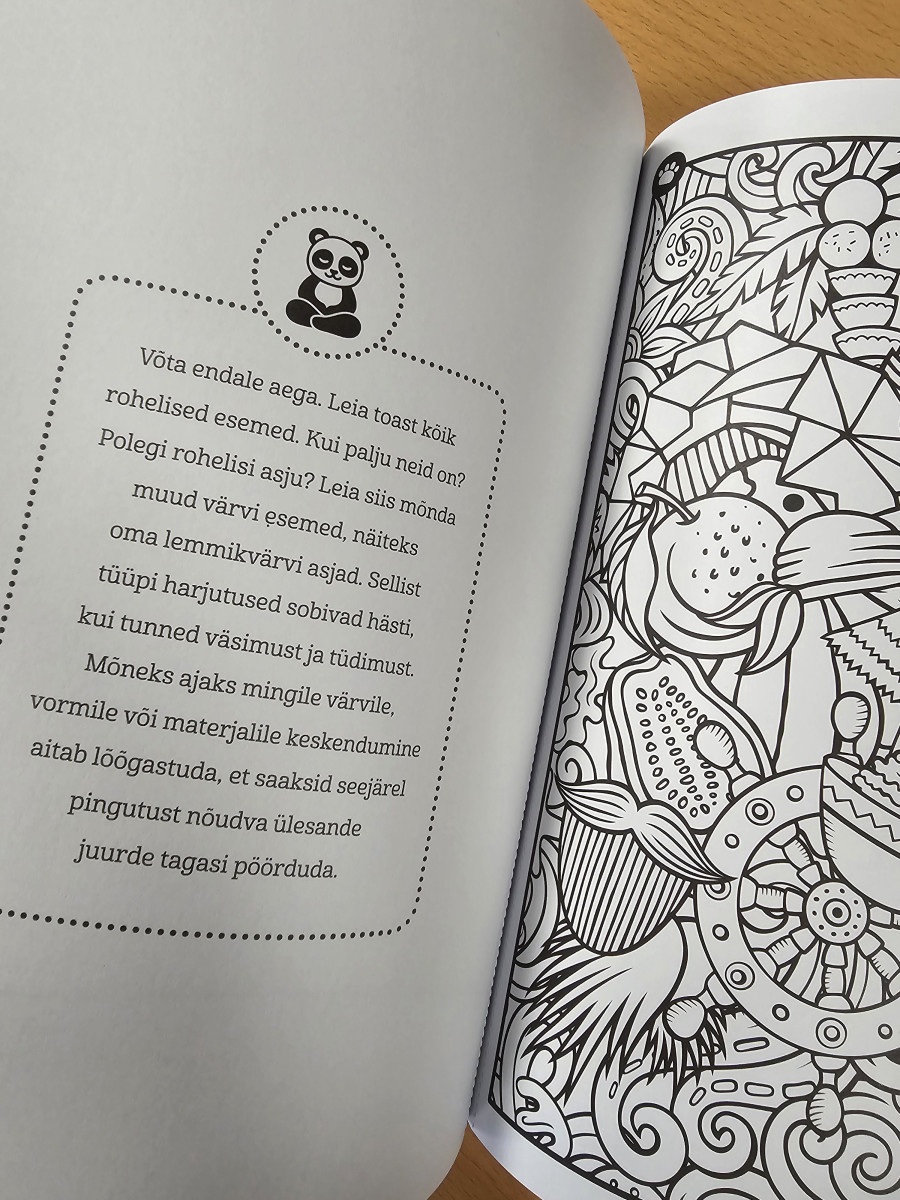 Võta endale aega. Leia toast kõik
rohelised esemed. Kui palju neid on?
Polegi rohelisi asju? Leia siis mõnda
muud värvi esemed, näiteks
oma lemmikvärvi asjad. Sellist
tüüpi harjutused sobivad hästi,
kui tunned väsimust ja tüdimust.
Mõneks ajaks mingile värvile,
vormile või materjalile keskendumine
aitab lõõgastuda, et saaksid seejärel
pingutust nõudva ülesande
juurde tagasi pöörduda.